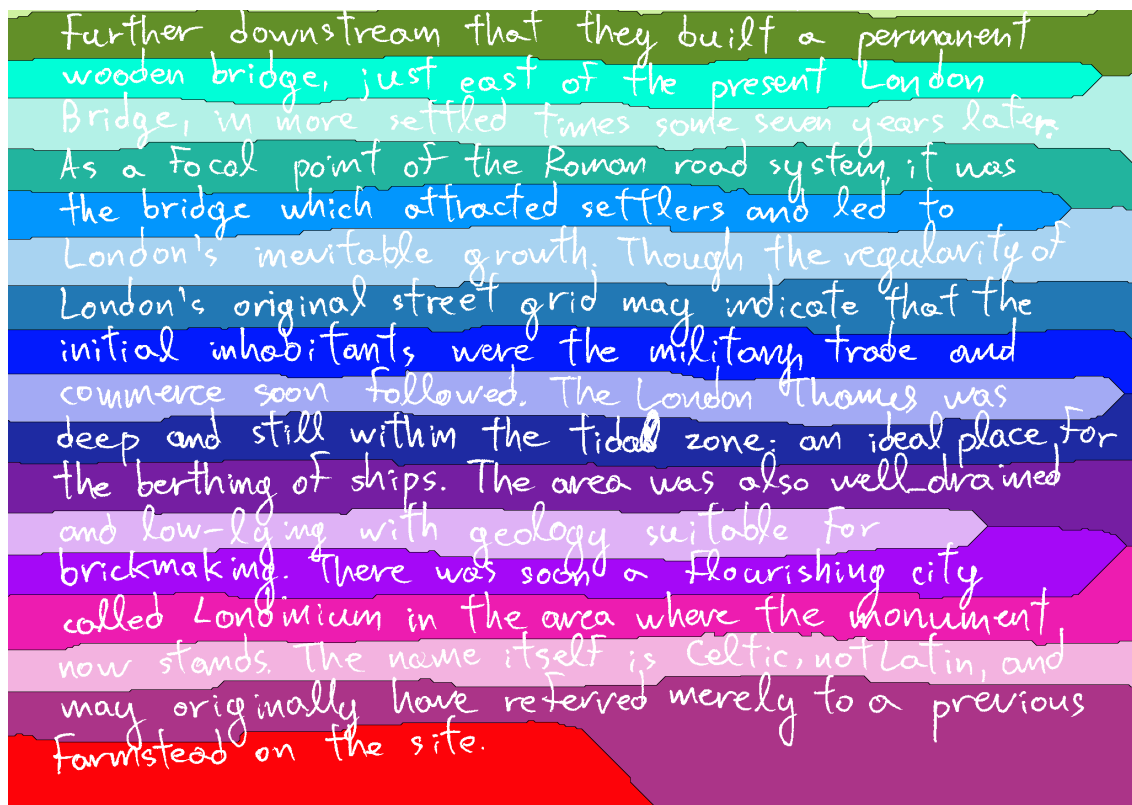 Further downstream that they built a permanent
wooden bridge, just east of the present London
Bridge, in more settled times some seven years later.
As a focal point of the Roman road system, it was
the bridge which attracted settlers and led to
London's inevitable growth. Though the regularity of
London's original street grid may indicate that the
initial inhabitants were the military, trade and
commerce soon followed. The London Thames was
deep and still within the tidal zone: an ideal place for
the berthing of ships. The area was also well-drained
and low-lying with geology suitable for
brickmaking. There was soon a flourishing city
called Londinium in the area where the monument
now stands. The name itself is Celtic, not Latin, and
may originally have referred merely to a previous
farmstead on the site.